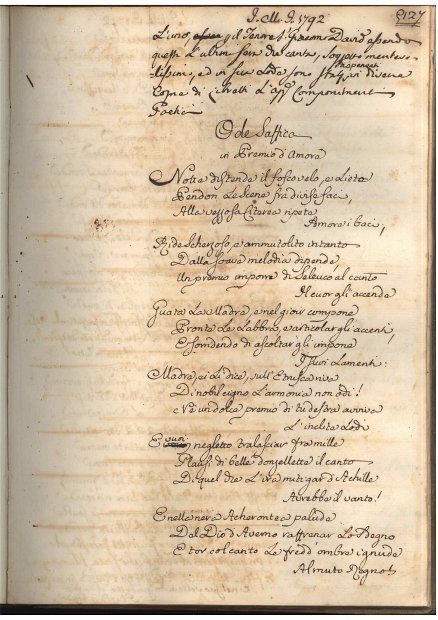 J. M. J. 1792
9127
L'uno, il Tenore Sig.r Giacom. David essendo
questa l'ultima sera che canta, soggetto mentevo-
lissimo, ed in sua Lode sono
Copia di Sonetti ed app. Componimenti
Poetici
Ode Saffica
in Premio d'Amore
Notte distende il fosco velo, e Lieta
Pendon Le Scene fra diverse faci,
Alla vezzosa Citerea ripete
Amore i baci,
Ride Scherzoso, e ammutolito intanto
Dalla soave melodia dipende
Un premio imporre di Seleuco al canto
Il cuor gli accende
Guata La Madre, e nel gioir compone
Pronta Le Labbra, e articolar gli accenti,
E sorridendo di ascoltar gli impone
I suoi Lamenti:
Madre, ei Li dice, sull'Etrusca riva
Di nobil cigno L'armonia non odi!
e v'è un dolce premio di tu destra avviva
L'inclite Lodi
E vuoi negletto tralasciar fra mille
Plausi di belle donzellette il canto
Di quel che L'ira mitigar d'Achille
Avrebbe il vanto!
E nella nera Acherontea palude
Dal Dio d'Averno raffrenar Lo sdegno
E tor col canto Le fredd'ombre ignude
Al muto Regno!